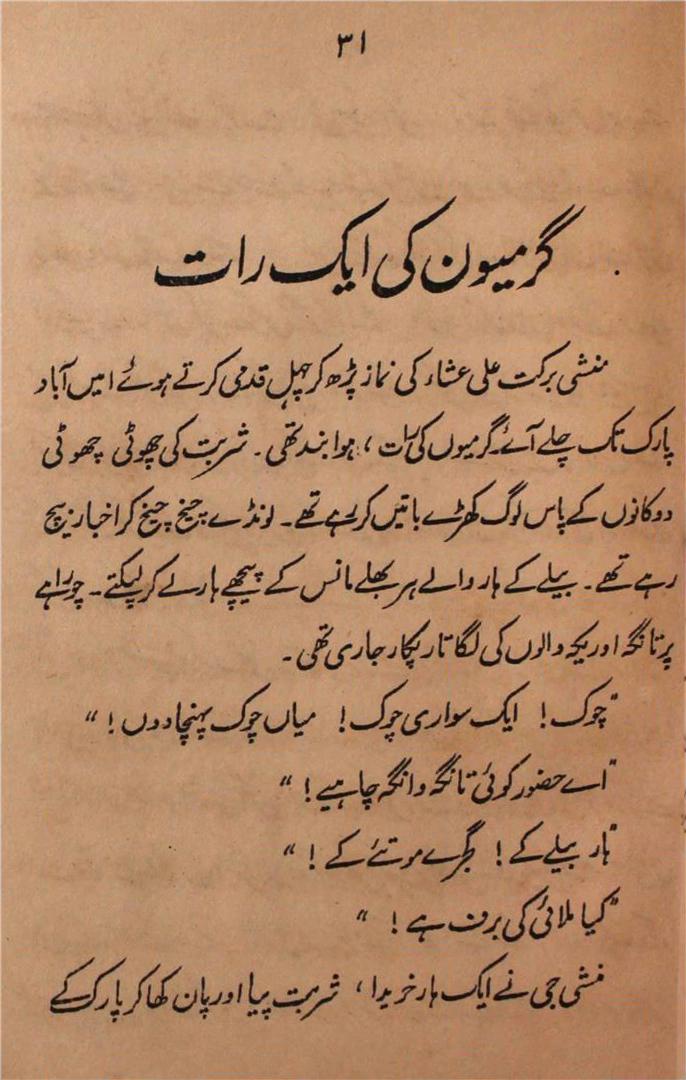 ۳۱
گرمیوں کی ایک رات
منشی برکت علی عشاء کی نماز پڑھ کر چہل قدمی کرتے ہوئے امین آباد
پارک تک چلے آئے۔ گرمیوں کی رات، ہوا بند تھی۔ شربت کی چھوٹی چھوٹی
دوکانوں کے پاس لوگ کھڑے باتیں کر رہے تھے۔ لونڈے چیخ چیخ کر اخبار بیچ
رہے تھے۔ بیلے کے ہار والے ہر بھلے مانس کے پیچھے ہار لے کر لپکتے۔ چوراہے
پر تانگہ اور یکہ والوں کی لگاتار پکار جاری تھی۔
"چوک! ایک سواری چوک! میاں چوک پہنچا دوں!"
"اے حضور کوئی تانگہ وانگہ چاہیے!"
"ہار بیلے کے! گجرے موتئے کے!"
"کیا ملائی کی برف ہے!"
منشی جی نے ایک ہار خریدا، شربت پیا اور پان کھا کر پارک کے